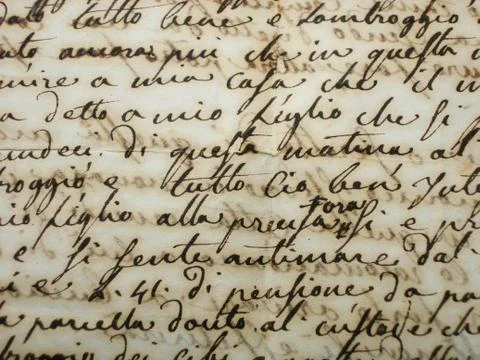 dato tutto bene e Lambroggió
ato ancora piú che in questa
nire a mia casa che il m
a detto a mio figlio che si
undeci. di questa matina al
roggió e tutto ció ben Inte
mio figlio alla precisa ora si e pr
e si sente antimare dal
i e 2. 41. di pensione da pa
a parcella douto al custode che